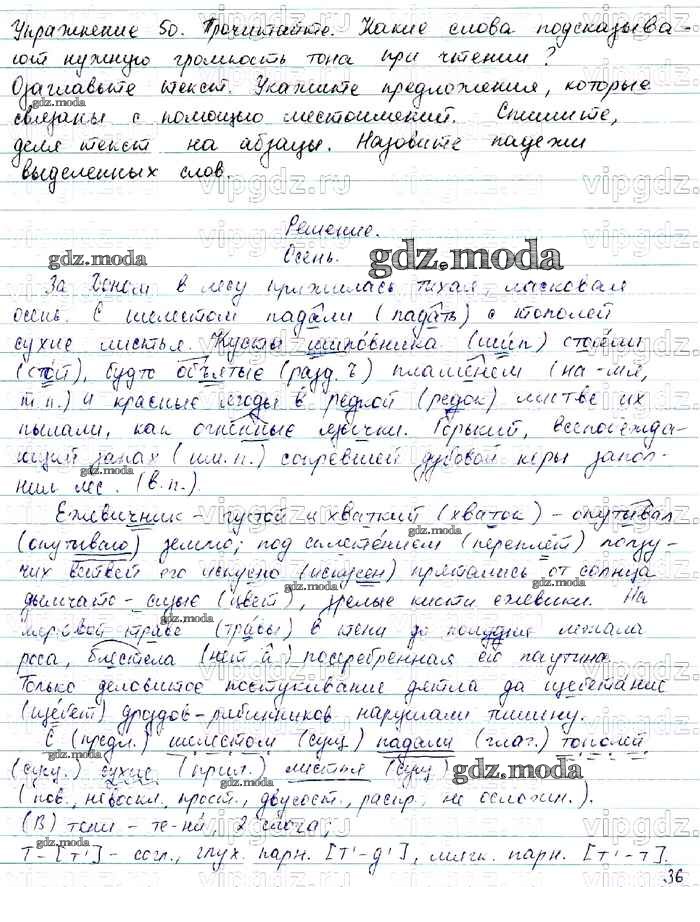 Упражнение 50. Прочитайте. Какие слова подсказыва-
ют нужную громкость тона при чтении?
Озаглавьте текст. Укажите предложения, которые
связаны с помощью местоимений. Спишите,
деля текст на абзацы. Назовите падежи
выделенных слов.
Решение.
Осень.
За Доном в лесу прижилась тихая, ласковая
осень. С шелестом падали (падать) с тополей
сухие листья. Кусты шиповника (шип) стояли
(стой), будто объятые (разд. ъ) пламенем (на -мя,
т.п.) и красные ягоды в редкой (редок) листве их
пылали, как огненные язычки. Горький, всепобежда-
ющий запах (им.п.) сопревшей дубовой коры запол-
нил лес. (в.п.).
Ежевичник – густой и хваткий (хваток) – опутывал
(опутываю) землю; под сплетением (переплёт) ползу-
чих ветвей его искусно (искусен) прятались от солнца
дымчато-сизые (цвет), зрелые кисти ежевики. На
мертвой траве (травы) в тени до полудня лежала
роса, блестела (нет а) посеребренная ею паутина.
Только деловитое постукивание дятла да щебетание
(щебет) дроздов-рябинников нарушали тишину.
С (предл.) шелестом (сущ.) падали (глаг.) тополей
(сущ.) сухие (прил.) листья (сущ.)
(пов., невоскл., прост., двусост., распр., не осложн.).
(В) тени – те-ни 2 слога;
т – [т'] – согл., глух. парн. [т'-д'], мягк. парн. [т'-т].
36
gdz.moda
vipgdz.ru